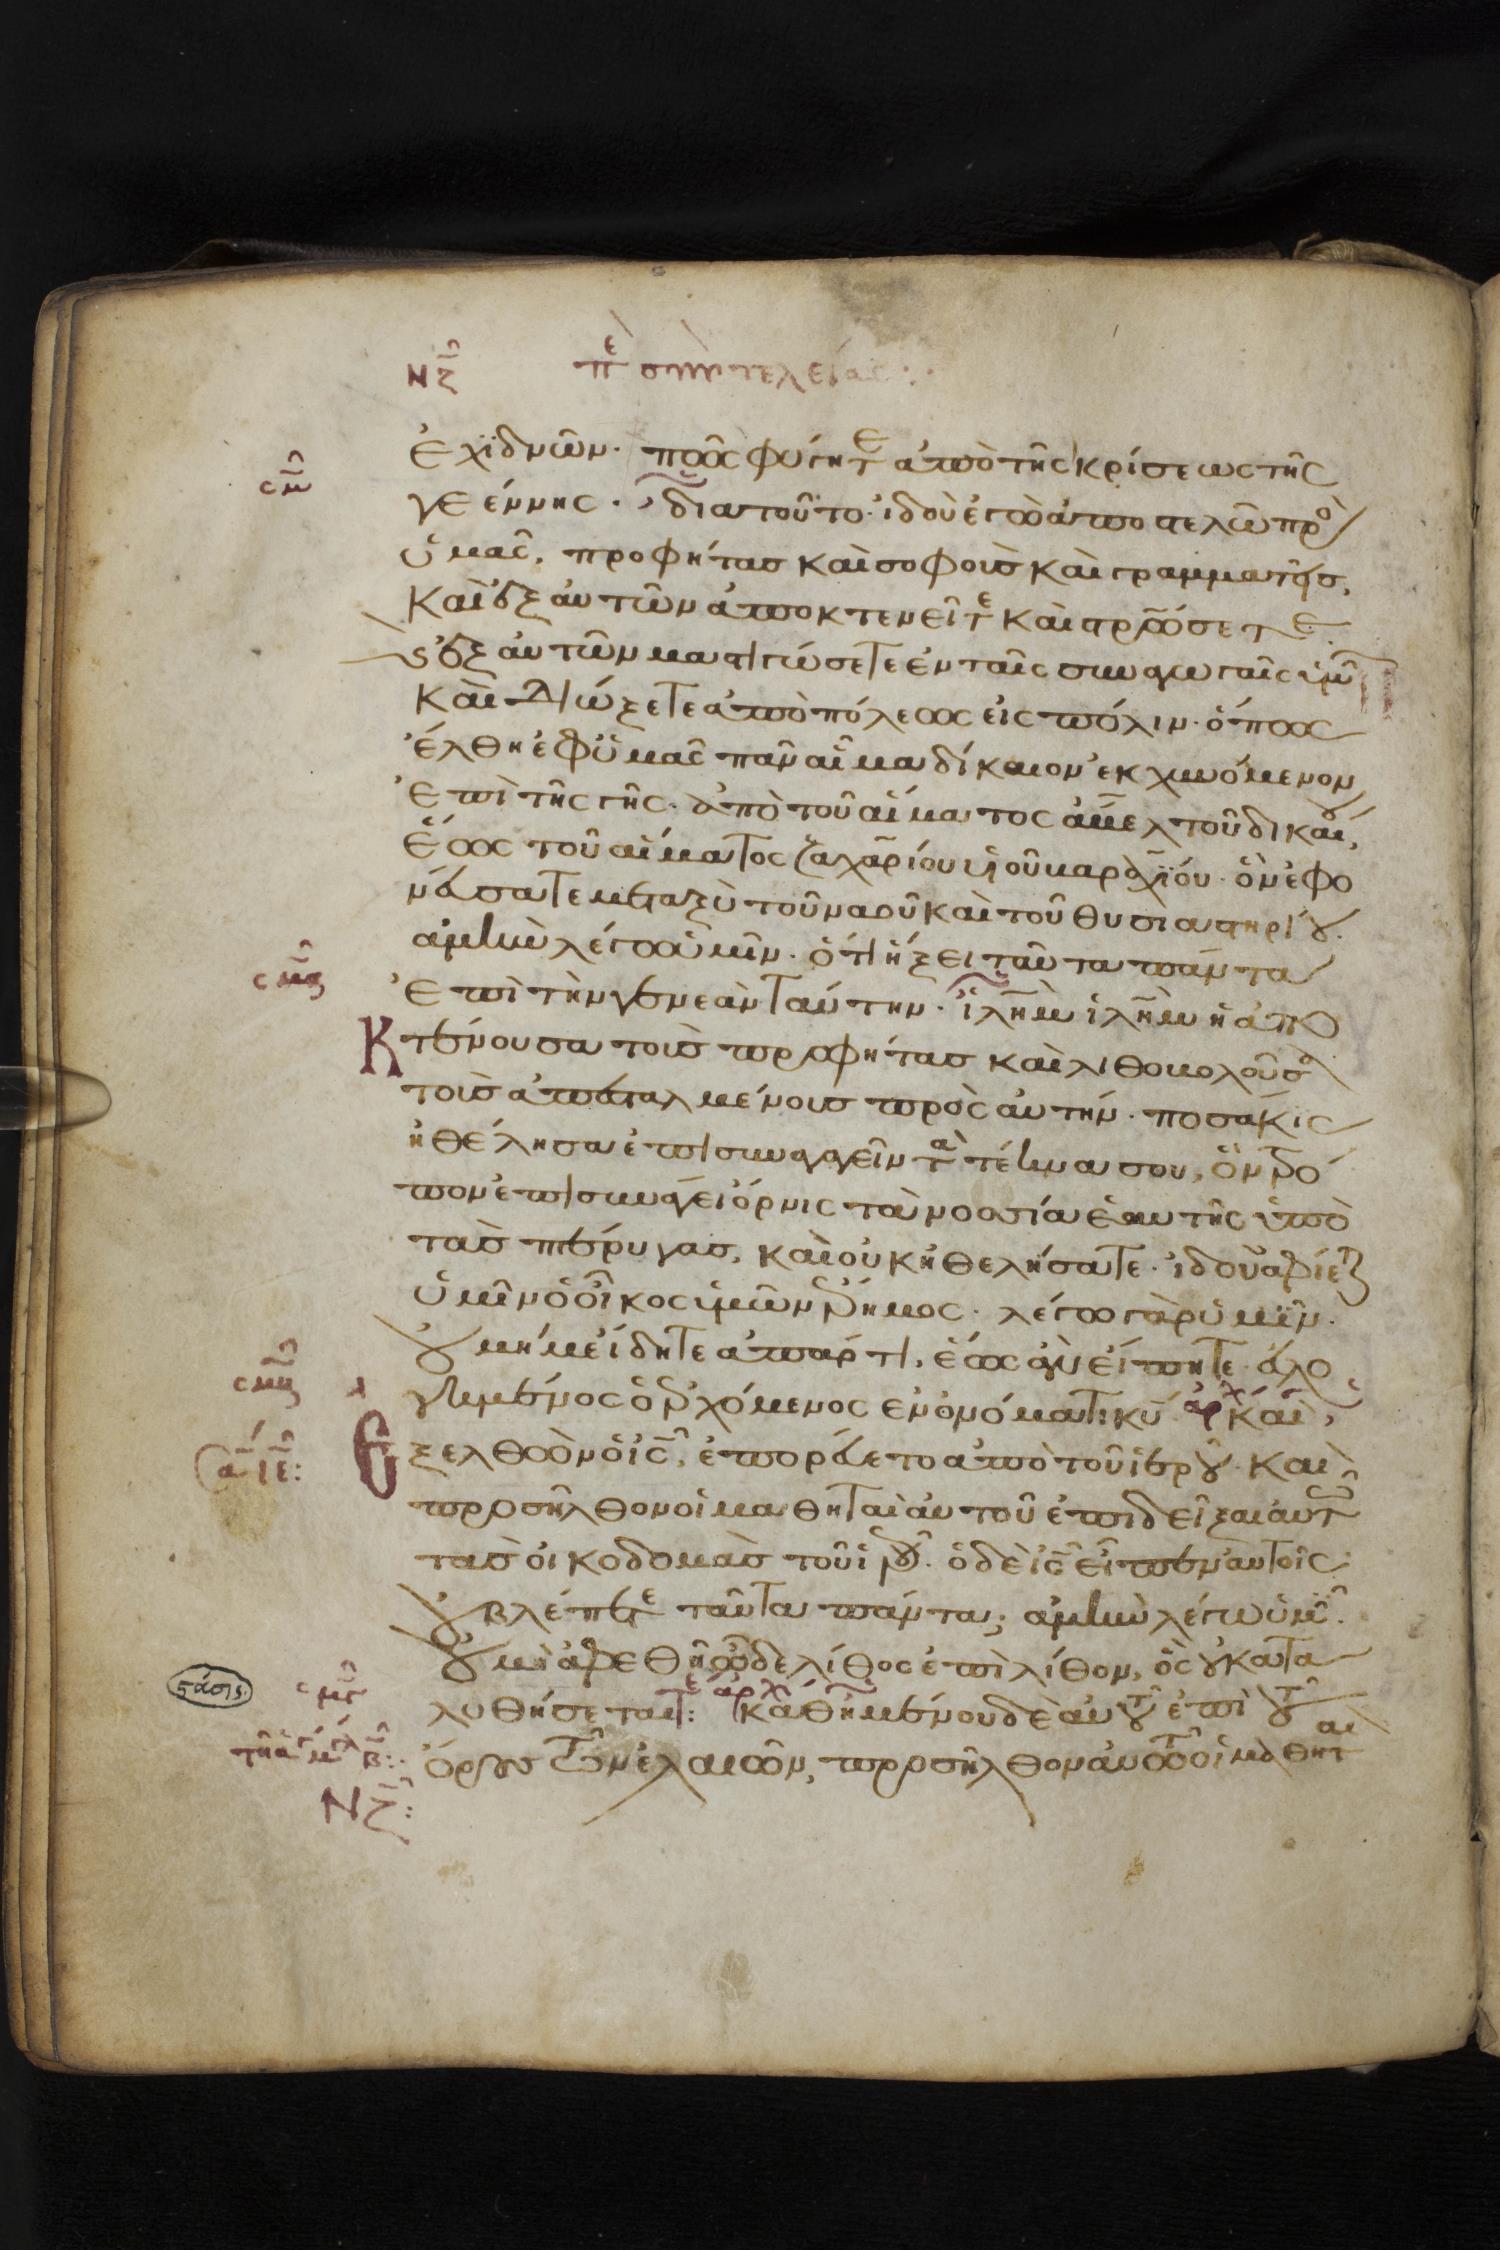 νζ πε συντελείας:·
ἐχϊδνῶν· πῶς φύγητε ἀπὸ τῆς κρίσεως τῆς
γεέννης· διατοῦτο· ἰδοὺ ἐγὼ ἀποστελῶ προ
ὑμᾶς, προφήτας καὶ σοφοὺς καὶ γραμματεῖς,
καὶ ἐξ αὐτῶν ἀποκτενεῖτε καὶ σταυρώσετε·
ϛ ἐξ αὐτῶν μαστιγώσετε ἐν ταῖς συναγωγαῖς ὑμῶ
καὶ διώξετε ἀπὸ πόλεως εἰς πόλιν· ὅπως
ἔλθη ἐφ ὑμᾶς πᾶν αἷμα δίκαιον ἐκχυνόμενον
ἐπὶ τῆς γῆς· ἀπὸ τοῦ αἵματος ἄβελ τοῦ δικαίου,
ἕως τοῦ αἵματος ζαχαρίου υἱοῦ βαραχίου· ὃν ἐφο
νεύσατε μεταξὺ τοῦ ναοῦ καὶ τοῦ θυσιαστηρίου.
σμ
ἀμὴν λέγω ὑμῖν· ὅτι ἥξει ταῦτα πάντα
ἐπὶ τὴν γενεὰν ταύτην· ϊλημ ἱλημ ἡ ἀπο
κτένουσα τοὺς προφήτας καὶ λιθοβολοῦσα
τοὺς ἀπεσταλμένους πρὸς αὐτήν· ποσάκις
ἠθέλησα ἐπισυναγαγεῖν τὰ τέκνα σου, ὃν τρό
πον ἐπισυνάγει ὄρνις τὰ νοσσία ἑαυτῆς ὑπὸ
τὰς πτέρυγας, καὶ οὐκ ἠθελήσατε· ἰδοὺ ἀφίεται
ὑμῖν ὁ οἶκος ὑμῶν ἔρημος· λέγω γὰρ ὑμῖν·
οὐ μή με ἴδητε ἀπάρτι, ἕως ἂν εἴπητε· εὐλο
γημένος ὁ ἐρχόμενος ἐν ὀνόματι κυ· ἀρχ καὶ
ἐξελθὼν ὁ ἰς, ἐπορεύετο ἀπὸ τοῦ ἱεροῦ· καὶ
προσῆλθον οἱ μαθηταὶ αὐτοῦ ἐπιδεῖξαι αὐτ
τὰς οἰκοδομὰς τοῦ ἱεροῦ. ὁ δὲ ις εἶπεν αὐτοῖς
οὐ βλέπετε ταῦτα πάντα; ἀμὴν λέγω ὑμῖ.
οὐ μὴ ἀφεθῆ ὧδε λίθος ἐπὶ λίθον, ὃς οὐ κατα
λυθήσεται: καθημένου δὲ αὐτοῦ ἐπὶ τοῦ
ὄρους τῶν ἐλαιῶν, προσῆλθον αὐτῶ οἱ μαθηταὶ
νζ: